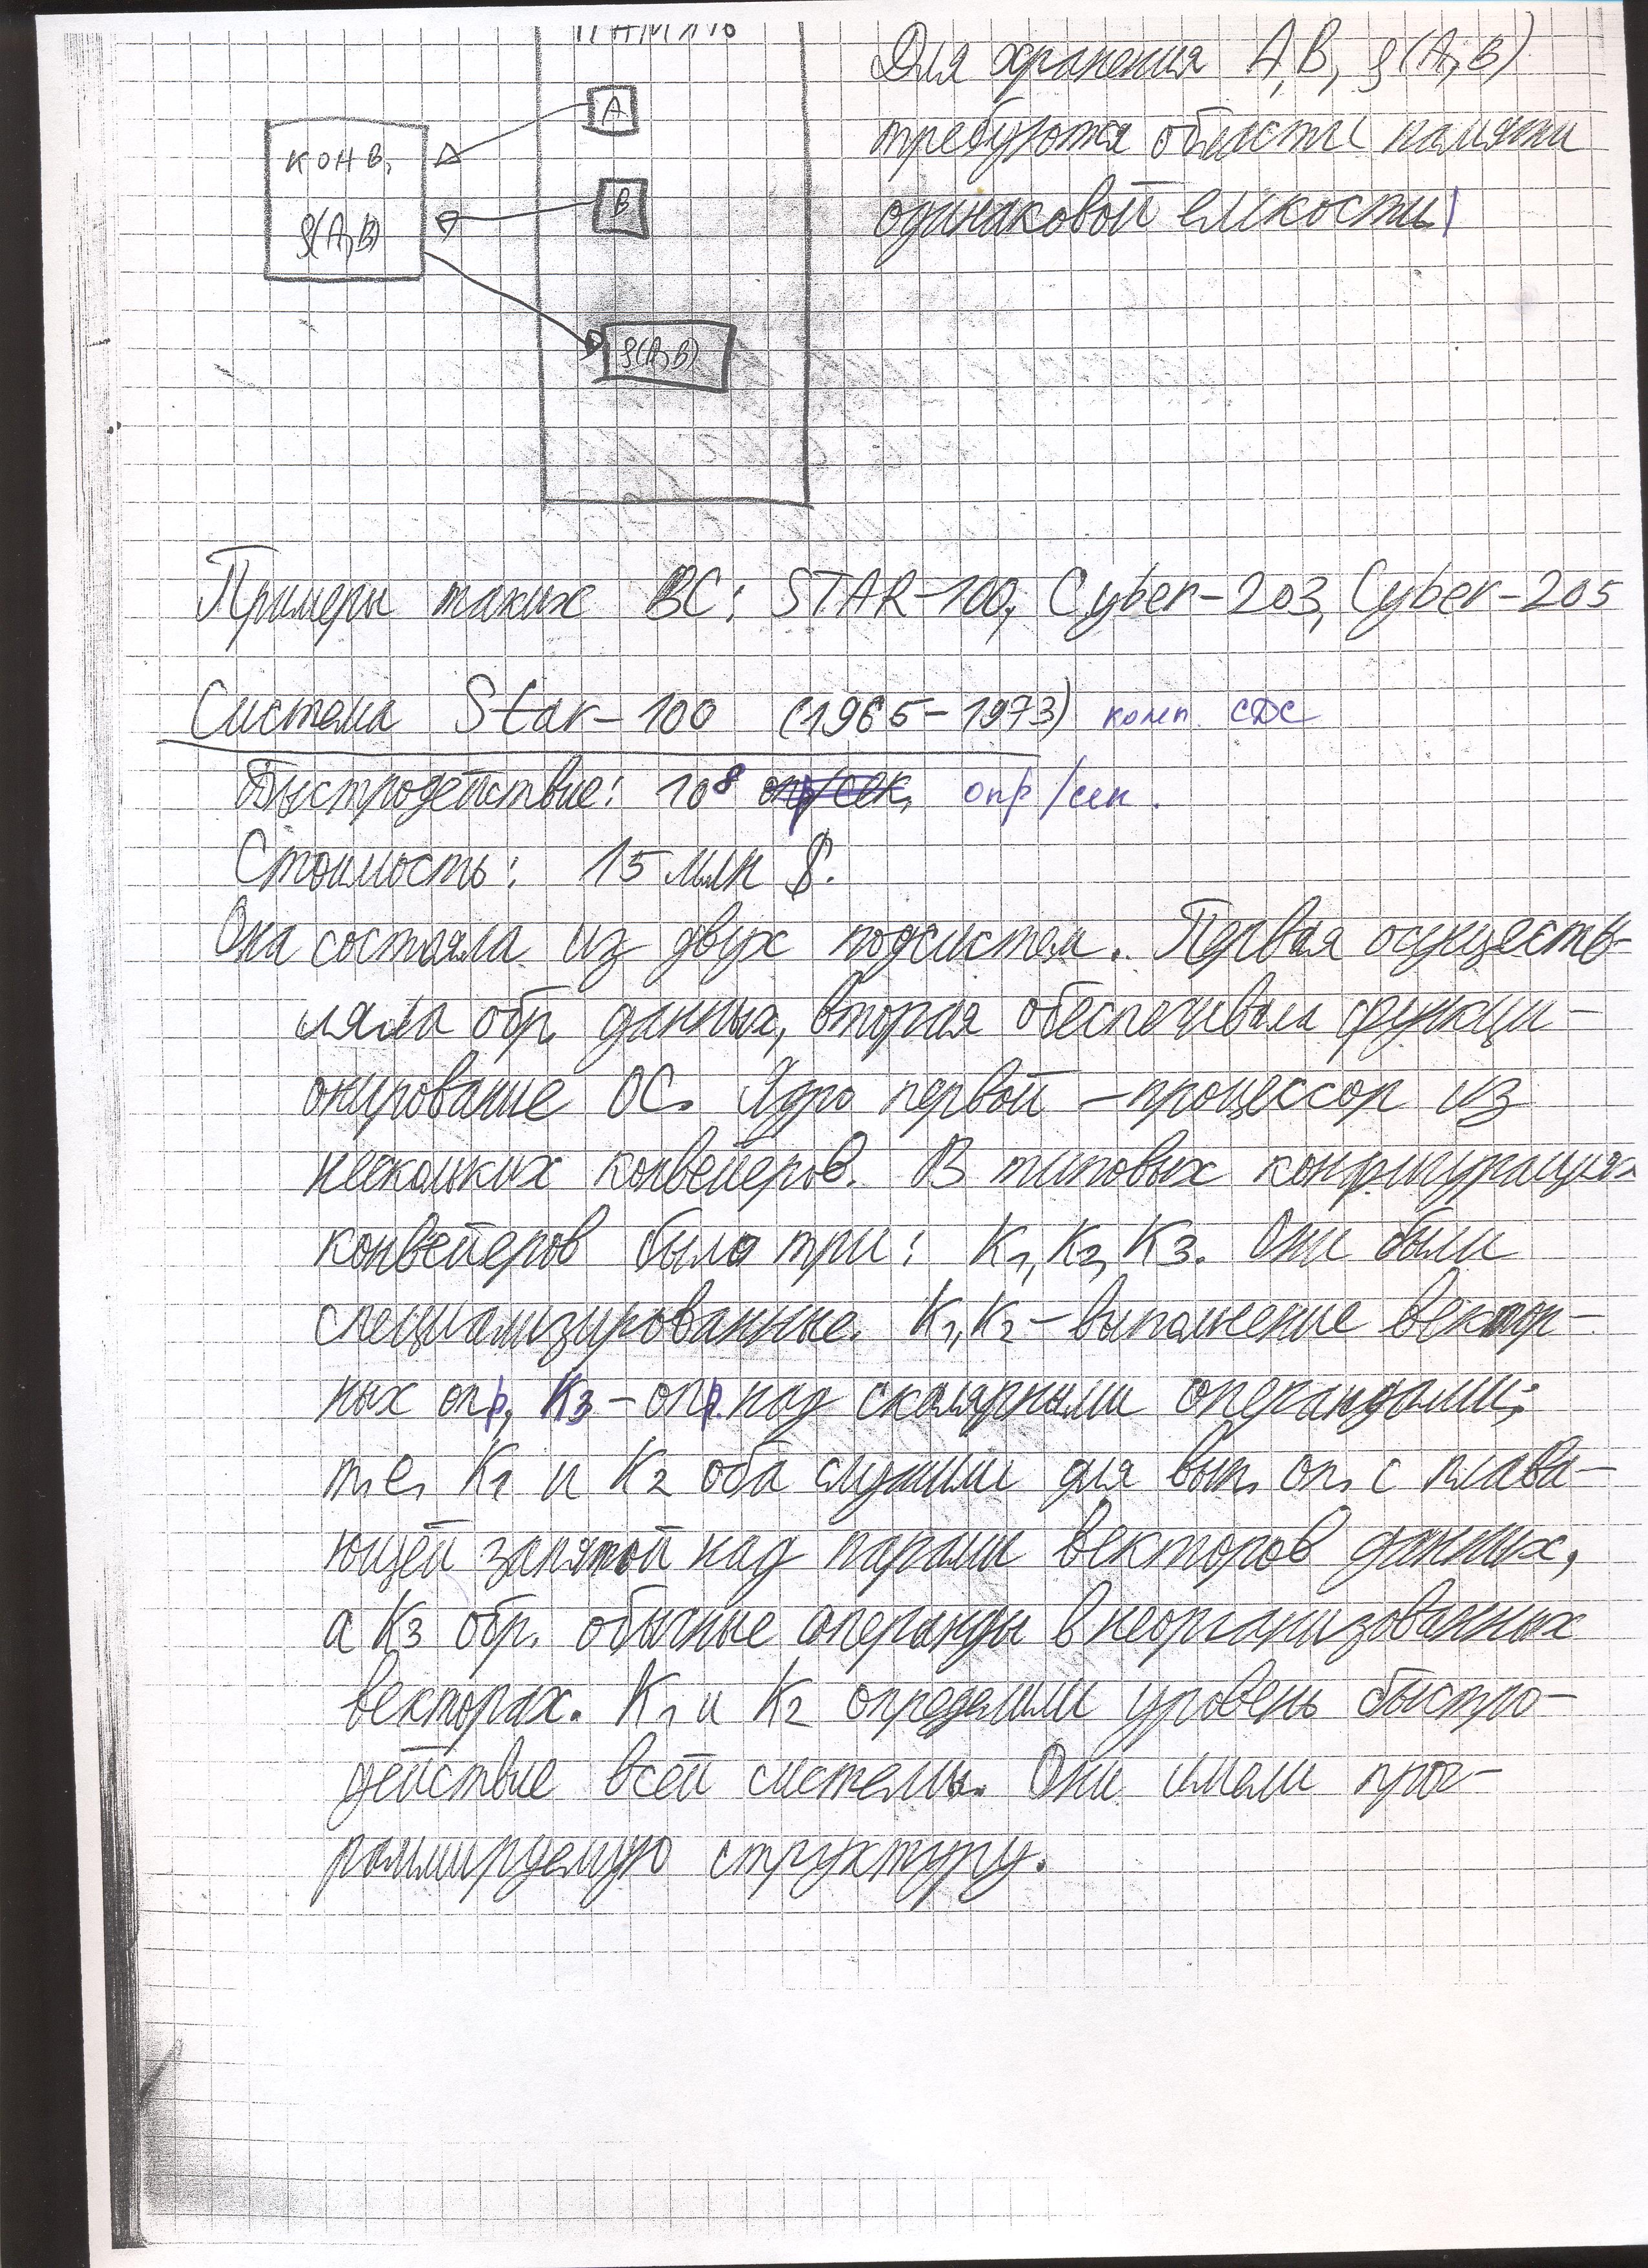 ПАМЯТЬ
A
B
КОНВ.
ƍ(A,B)
ƍ(A,B)
Для хранения A,B, ƍ(A,B)
требуются области памяти
одинаковой ёмкости!
Примеры таких ВС: STAR-100, Cyber-203, Cyber-205
Система Star-100 (1965-1973) комп. CDC
Быстродействие: 10⁸ оп/сек, опр/сек.
Стоимость: 15 млн $.
Она состояла из двух подсистем. Первая осуществ-
ляла обр. данных, вторая обеспечивала функци-
онирование ОС. Ядро первой - процессор из
нескольких конвейеров. В типовых конфигурациях
конвейеров было три: K₁, K₂, K₃. Они были
специализированные. K₁, K₂ - выполнение вектор-
ных опр, K₃ - опр. над скалярными операндами;
т.е. K₁ и K₂ оба служили для вып. оп. с плава-
ющей запятой над парами векторов данных,
а K₃ обр. обычные операнды в неорганизованных
векторах. K₁ и K₂ определили уровень быстро-
действие всей системы. Они имели прог-
раммируемую структуру.